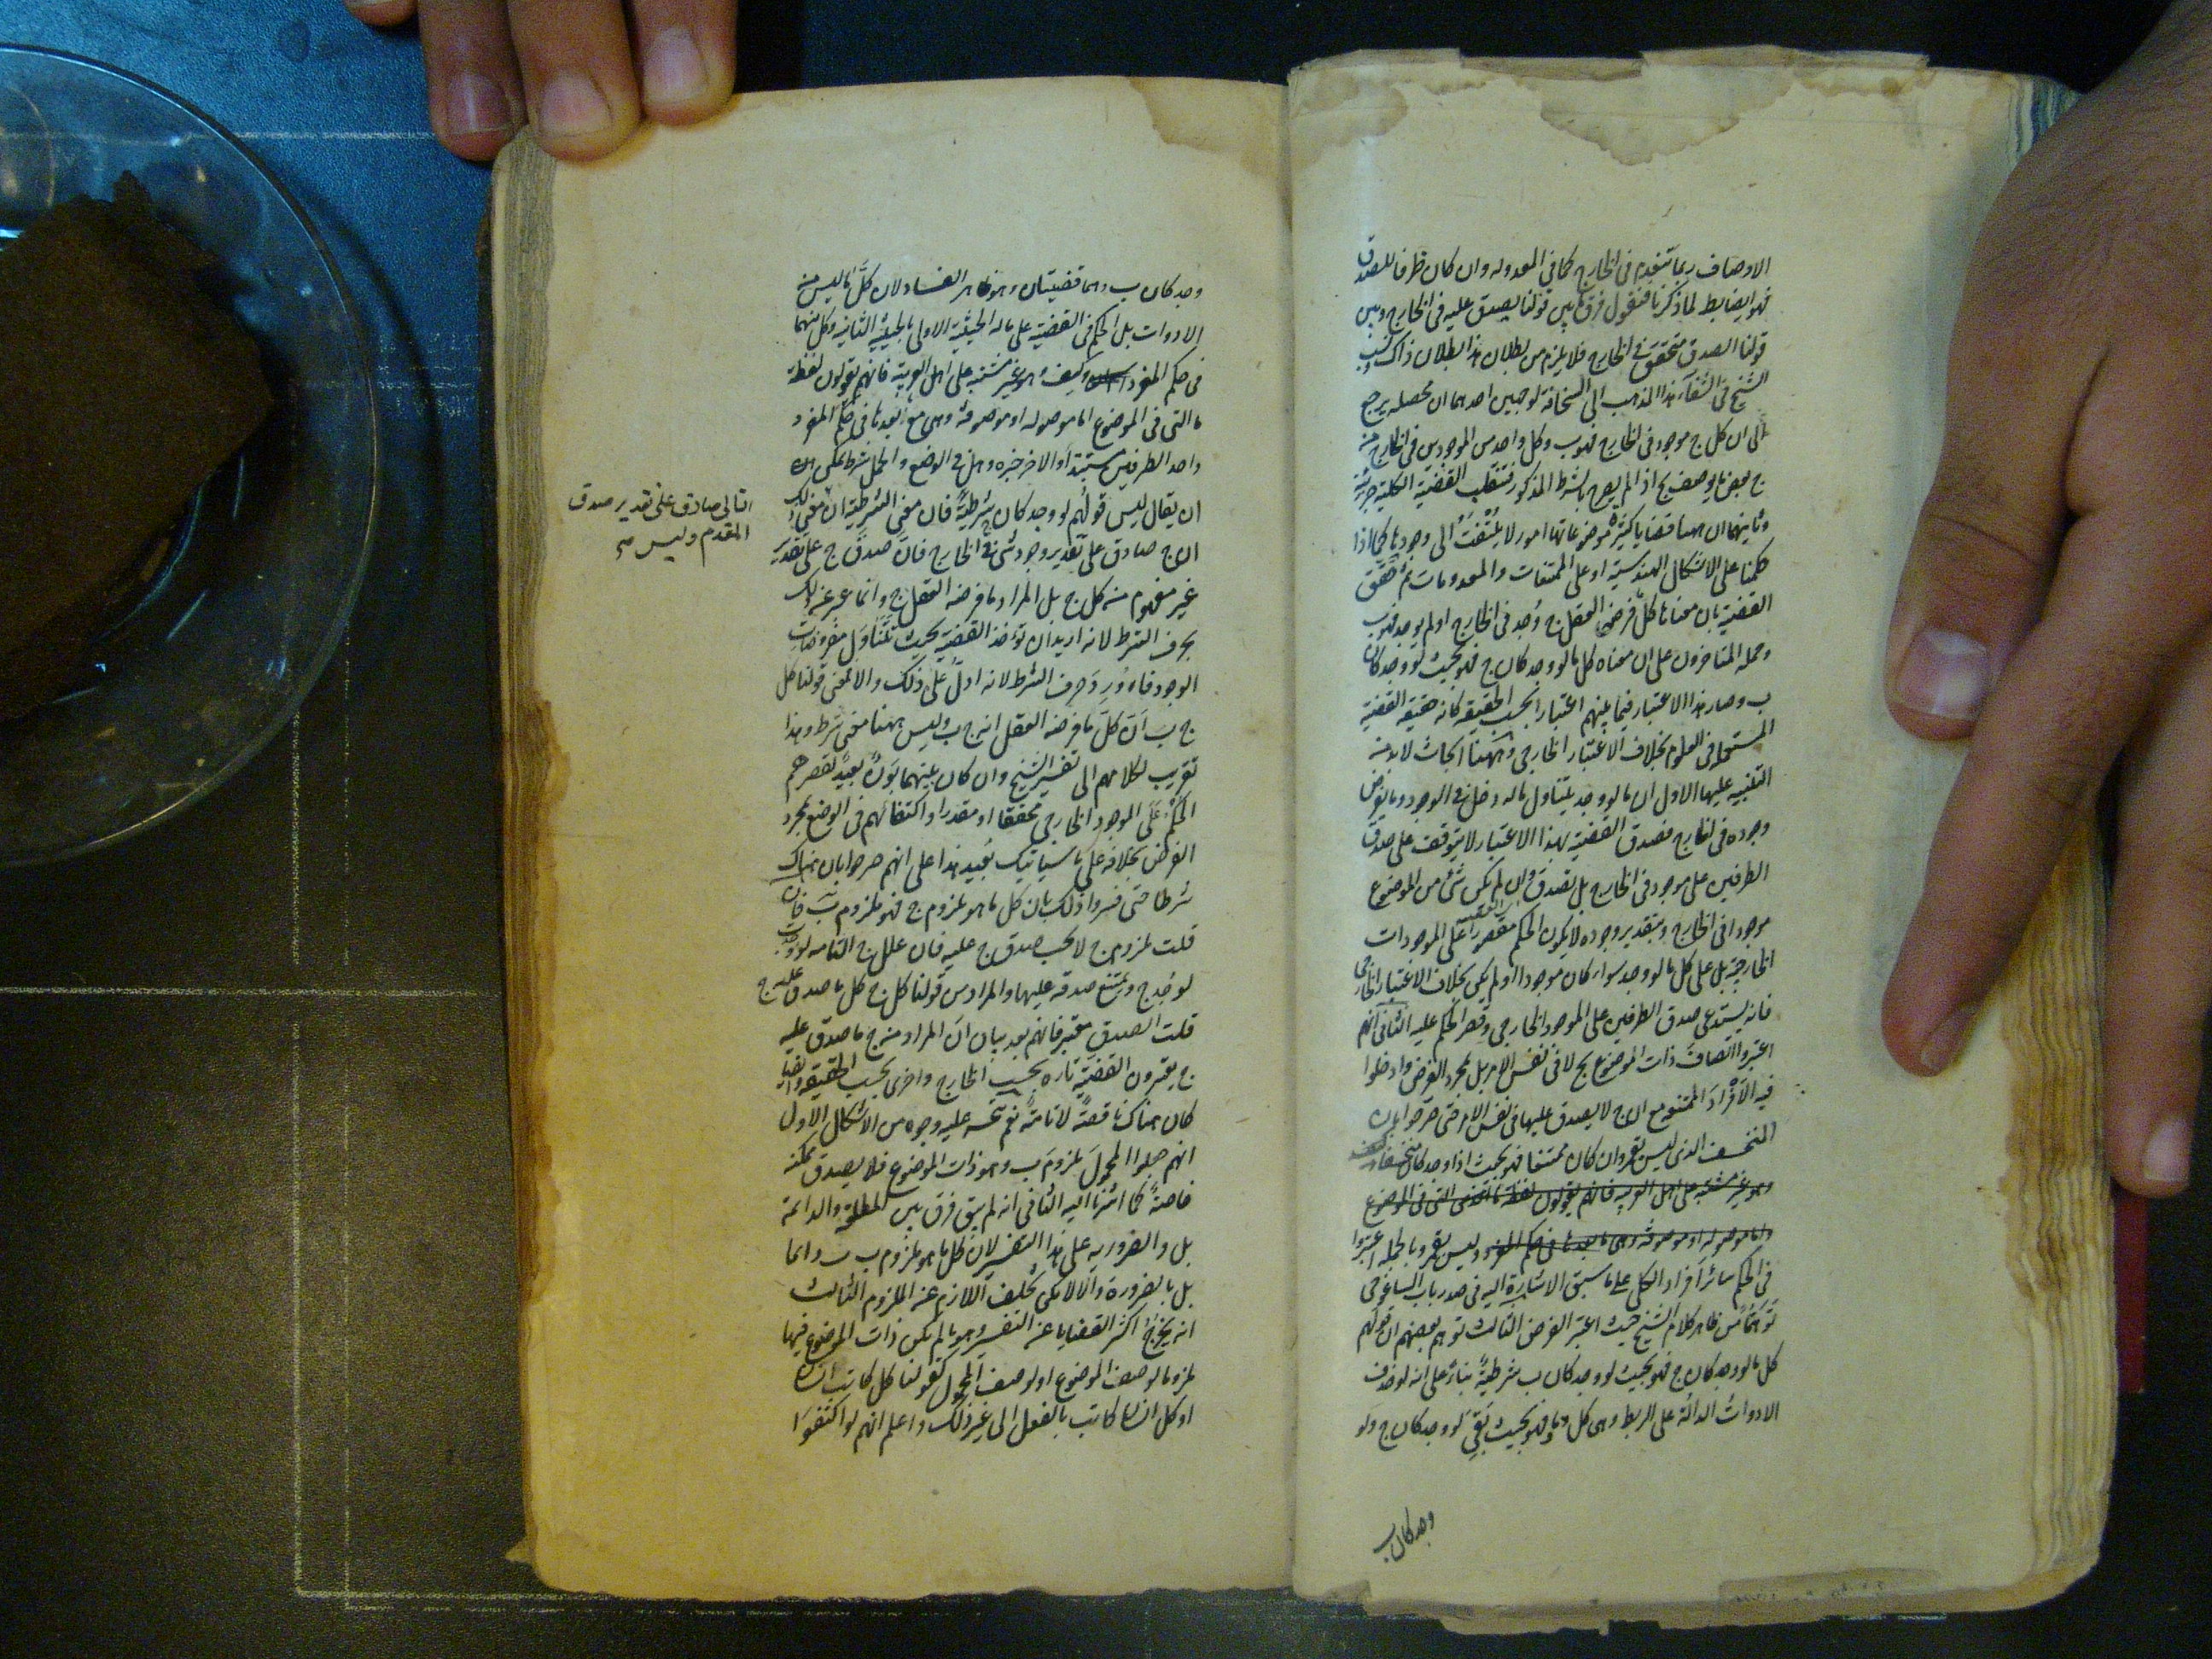 الاوصاف ربما تنعدم فى الخارج كما فى المعدوله وان كان ظرفا للصدق
فهو ايضا بط لما ذكرنا فنقول فرق بين قولنا يصدق عليه فى الخارج وبين
قولنا الصدق متحقق فى الخارج فلا يلزم من بطلان هذا بطلان ذاك ونسب
الشيخ فى الشفاء هذا المذهب الى السخافة لوجهين احدهما ان محصله يرجع
الى ان كل ج موجود فى الخارج فهو ب وكل واحد من الموجودين فى الخارج منه
ج بعض ما يوصف بج اذا لم يصرح بالشرط المذكور فتنقلب القضية الكلية جزئية
وثانيهما ان ههنا قضايا كثيرة موضوعاتها امور لا يلتفت الى وجودها كما اذا
حكمنا على الاشكال الهندسية او على الممتنعات والمعدومات ثم حقق
القضية بان معناها كل ما فرضه العقل ج وجد فى الخارج اولم يوجد فهو ب
وحمله المتاخرون على ان معناه كل ما لو وجد كان ج فهو بحيث لو وجد كان
ب وصار هذا الاعتبار فيما بينهم اعتبارا بحسب الحقيقة كانه حقيقه القضية
المستعملة فى العلوم بخلاف الاعتبار الخارجى وههنا ابحاث لابد من
التنبيه عليها الاول ان ما لو وجد يتناول ما له دخل فى الوجود وما يفرض
وجوده فى الخارج فصدق القضية بهذا الاعتبار لا يتوقف على صدق
الطرفين على موجود فى الخارج بل تصدق وان لم يكن شئ من الموضوع
موجودا فى الخارج وبتقدير وجوده لا يكون الحكم مقصورا على الموجودات
الخارجية بل على كل ما لو وجد سواء كان موجودا او لم يكن بخلاف الاعتبار الخارجى
فانه يستدعى صدق الطرفين على الموجود الخارجى وقصر الحكم عليه الثانى انهم
اعتبروا اتصاف ذات الموضوع بج لا فى نفس الامر بل بمجرد الفرض وادخلوا
فيه الافراد الممتنعه مع ان ج لا يصدق عليها فى نفس الامر حتى صرحوا بان
المنخسف الذى ليس بقمر وان كان ممتنعا فهو بحيث اذا وجد كان منخسفا
وهو غير مشتبه على اهل العربية فانهم يقولون لفظة ما التى فى الموضوع
اما موصوله او موصوفة وهى مع ما بعدها فى حكم المفرد وليس بقمر وبالجمله اعتبروا
فى الحكم سائر افراد الكلى على ما سبق الاشارة اليه فى صدر باب ايساغوجى
توهما من ظاهر كلام الشيخ حيث اعتبر الفرض الثالث توهم بعضهم ان قولهم
كل ما لو وجد كان ج فهو بحيث لو وجد كان ب شرطية بناء على انه لو حذف
الادوات الدالة على الربط وهى كل وما وفهو بحيث بقى لو وجد كان ج ولو
وجد كان ب
وجد كان ب وهما قضيتان وهو ظاهر الفساد لان كل ما ليس من
الادوات بل الحكم فى القضية على ماله الحيثية الاولى بالحيثية الثانية وكل منهما
فى حكم المفرد وكيف وهو غير مشتبه على اهل العربية فانهم يقولون لفظة
ما التى فى الموضوع اما موصوله او موصوفة وهى مع ما بعدها فى حكم المفرد
واحد الطرفين مبتدأ والاخر خبره وهل فى الوضع والحمل شرط يمكن
ان يقال ليس قولهم لو وجد كان شرطية فان معنى الشرطية ان
التالى صادق على تقدير صدق
المقدم وليس صح
ان ج صادق على تقدير وجود شئ فى الخارج فان صدق ج على تقدير
غير مفهوم من كل ج بل المراد ما فرضه العقل ج وانما عبر عن ذلك
بحرف الشرط لانه اريد ان تؤخذ القضية بحيث تتناول مفروضات
الوجود فاورد حرف الشرط لانه ادل على ذلك والا فمعنى قولنا كل
ج ب ان كل ما فرضه العقل انه ج ب وليس ههنا معنى شرط وهذا
تقريب لكلامهم الى تفسير الشيخ وان كان بينهما بون بعيد لقصرهم
الحكم على الموجود الخارجى محققا او مقدرا واكتفائهم فى الوضع بمجرد
الفرض بخلافه على ما سيأتيك بعيد هذا على انهم صرحوا بان هناك
شرطا حتى فسروا ذلك بان كل ما هو ملزوم ج فهو ملزوم ب فان
قلت ملزوم ج لا يجب صدق ج عليه فان علل ج التامه لو وجدت
لوجد ج ويمتنع صدقه عليها والمراد من قولنا كل ج كل ما صدق عليه ج
قلت الصدق معتبر فانهم بعد بيان ان المراد من ج ما صدق عليه
ج يعتبرون القضية تارة بحسب الخارج واخرى بحسب الحقيقة وايضا
كان هناك ناقصة لا تامة نعم يتجه عليه وجوه من الاشكال الاول
انهم جعلوا المحمول ملزوم ب وهو ذات الموضوع فلا يصدق ممكنه
خاصة كما اشرنا اليه الثانى انه لم يبق فرق بين المطلقة والدائمة
بل والضرورية على هذا التفسير لان كل ما هو ملزوم ب ب دائما
بل بالضرورة والا لامكن تخلف اللازم عن الملزوم الثالث
انه يخرج اكثر القضايا عن التفسير وهو ما لم يكن ذات الموضوع فيها
ملزوما لوصف الموضوع او لوصف المحمول كقولنا كل كاتب انسان
او كل انسان كاتب بالفعل الى غير ذلك واعلم انهم لو اكتفوا